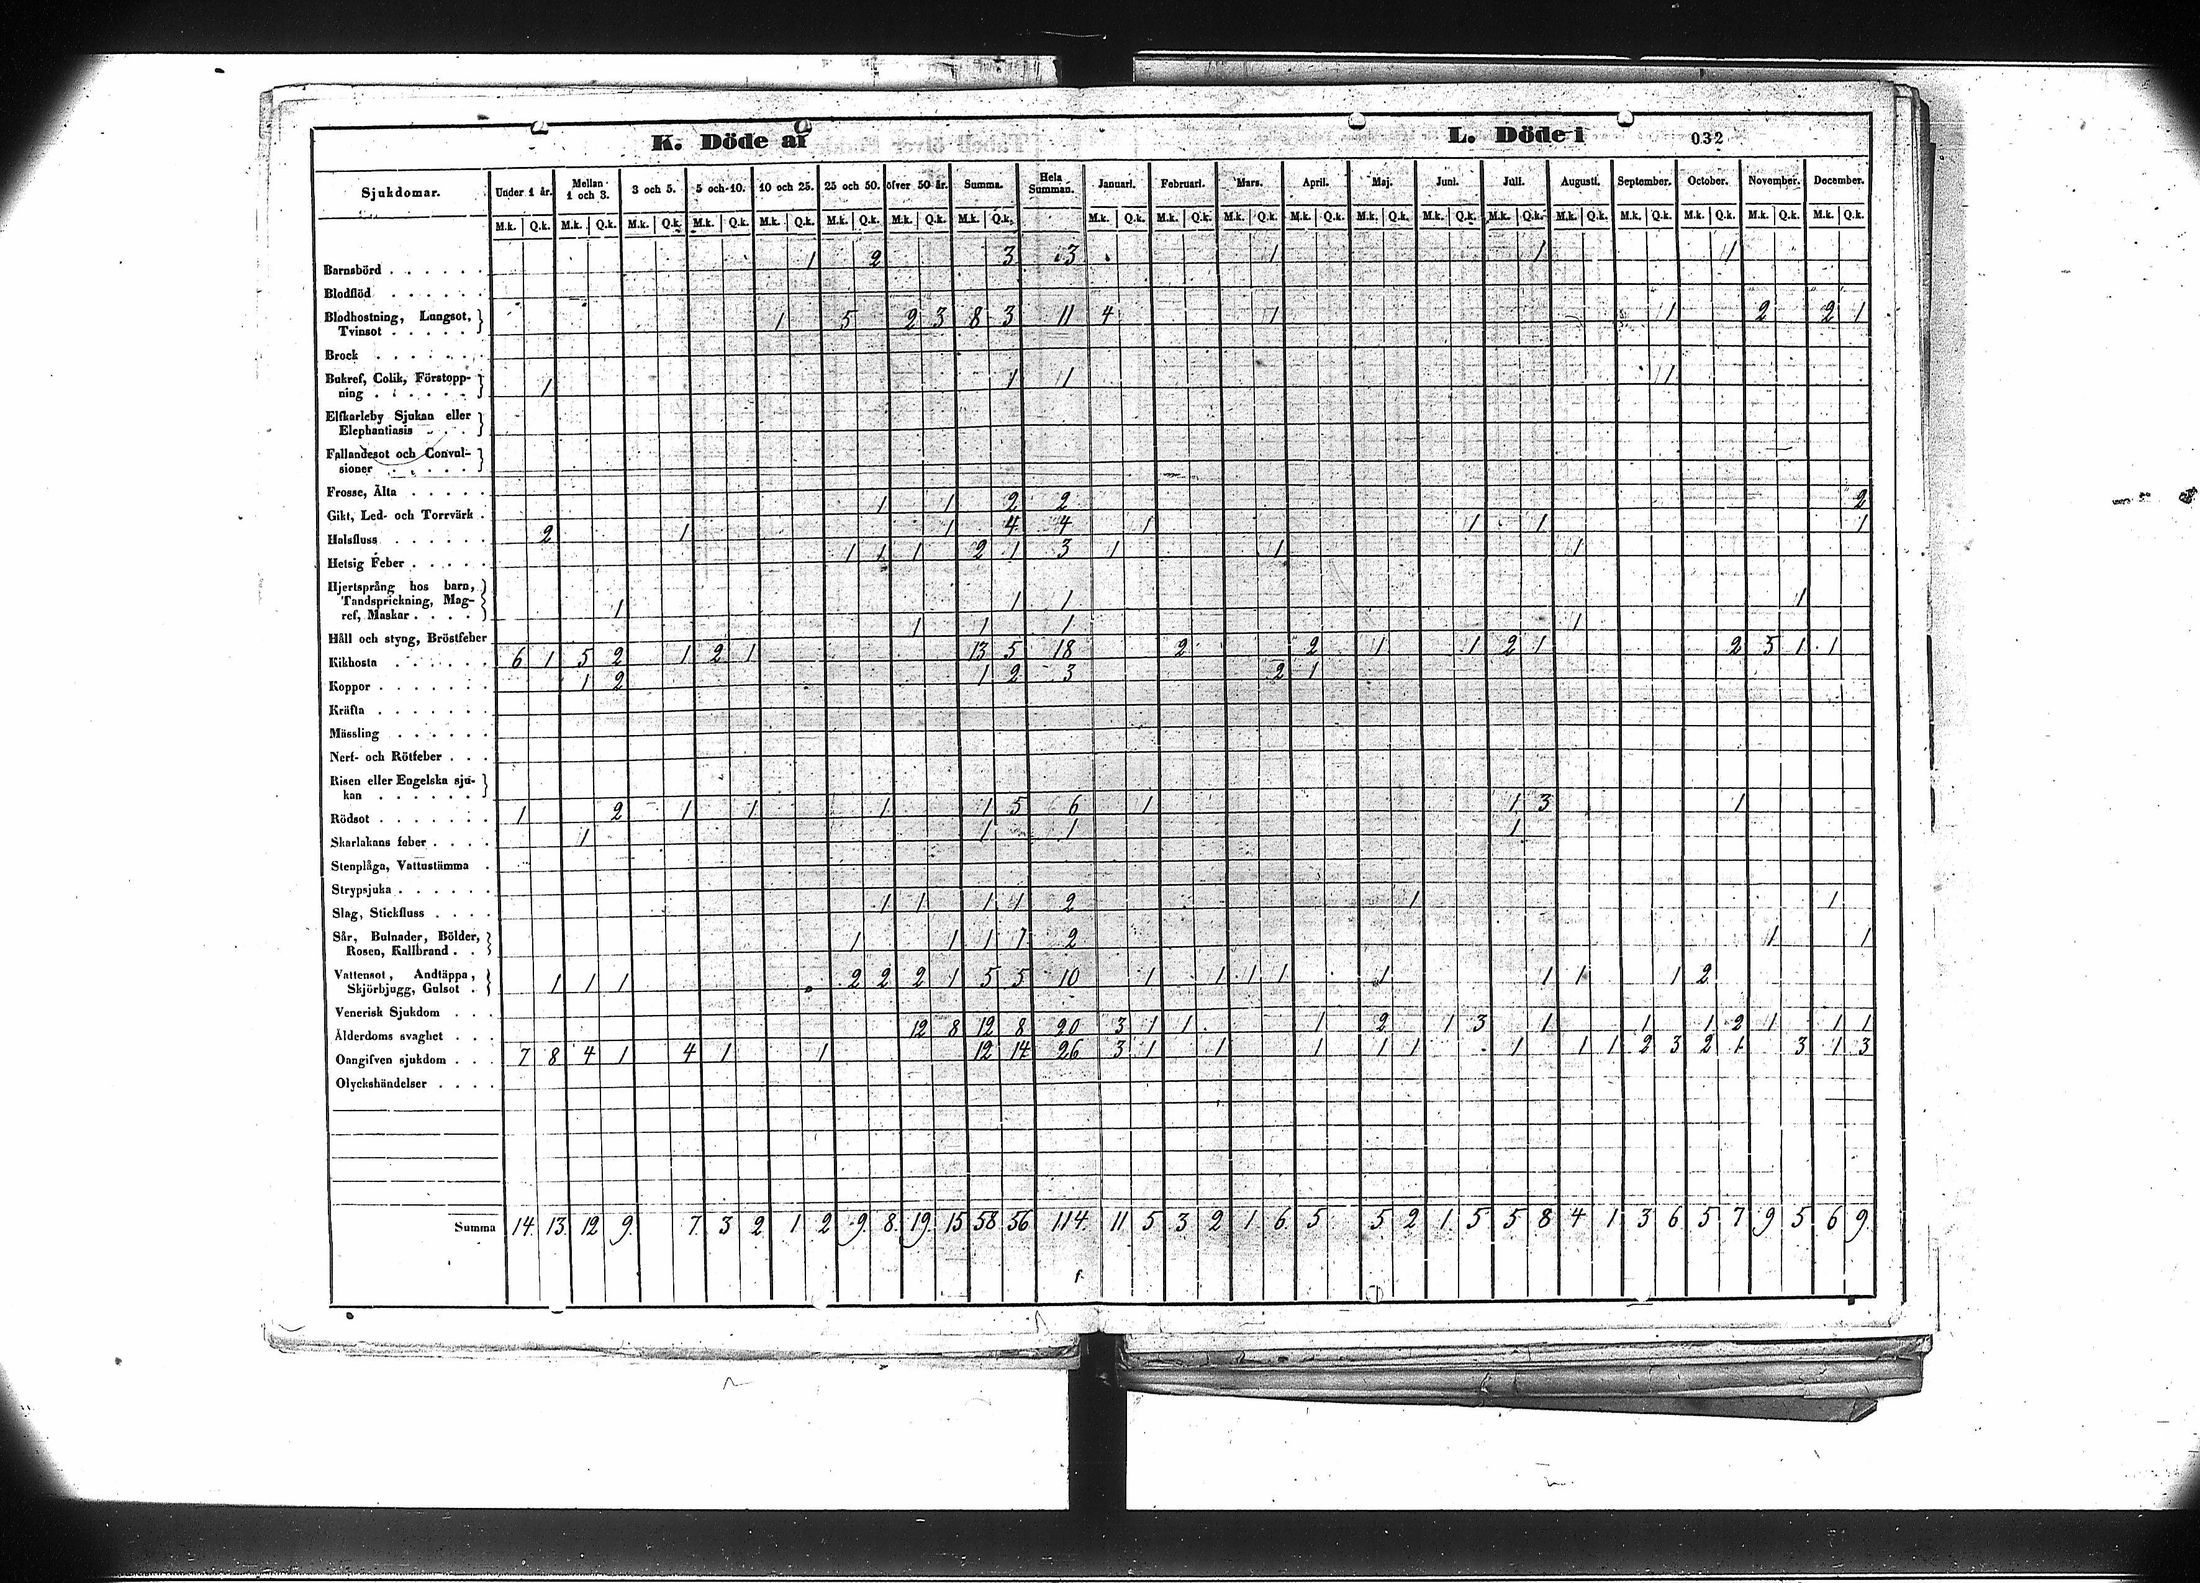 K. Döde af L. Döde i 032
Sjukdomar. Under 1 år. Mellan 1 och 3. 3 och 5. 5 och 10. 10 och 25. 25 och 50. öfver 50 år. Summa. Hela Summan. Januari. Februari. Mars. April. Maj. Juni. Juli. Augusti. September. October. November. December.
M.k. Q.k. M.k. Q.k. M.k. Q.k. M.k. Q.k. M.k. Q.k. M.k. Q.k. M.k. Q.k. M.k. Q.k. M.k. Q.k. M.k. Q.k. M.k. Q.k. M.k. Q.k. M.k. Q.k. M.k. Q.k. M.k. Q.k. M.k. Q.k. M.k. Q.k. M.k. Q.k. M.k. Q.k. M.k. Q.k.
Barnsbörd . . . . . . 1 2 3 3 1 1 1
Blodflöd . . . . . .
Blodhostning, Lungsot,
Tvinsot . . . . . 1 5 2 3 8 3 11 4 1 1 2 2 1
Brock . . . . . . .
Bukref, Colik, Förstopp-
ning . . . . . . 1 1 1 1
Elfkarleby Sjukan eller
Elephantiasis . . .
Fallandesot och Convul-
sioner . . . . .
Frosse, Älta . . . . .
Gikt, Led- och Torrvärk . 1 1 2 2 2
Halsfluss . . . . . . 2 1 1 4 4 1 1 1 1
Hetsig Feber . . . . . 1 1 1 2 1 3 1 1 1
Hjertsprång hos barn,
Tandsprickning, Mag-
ref, Maskar . . . . 1 1 1 1
Håll och styng, Bröstfeber 1 1 1 1
Kikhosta . . . . . . 6 1 5 2 1 2 1 13 5 18 2 2 1 1 2 1 2 5 1 1
Koppor . . . . . . . 1 2 1 2 3 2 1
Kräfta . . . . . . .
Mässling . . . . . .
Nerf- och Rötfeber . . .
Risen eller Engelska sju-
kan . . . . . .
Rödsot . . . . . . . 1 2 1 1 1 1 5 6 1 1 3 1
Skarlakans feber . . . . 1 1 1 1
Stenplåga, Vattustämma .
Strypsjuka . . . . . .
Slag, Stickfluss . . . . 1 1 1 1 2 1 1
Sår, Bulnader, Bölder,
Rosen, Kallbrand . . 1 1 1 1 2 1 1
Vattensot, Andtäppa,
Skjörbjugg, Gulsot . 1 1 1 2 2 2 1 5 5 10 1 1 1 1 1 1 1 1 2
Venerisk Sjukdom . . .
Ålderdoms svaghet . . . 12 8 12 8 20 3 1 1 1 2 1 3 1 1 1 2 1 1 1
Oangifven sjukdom . . . 7 8 4 1 4 1 1 12 14 26 3 1 1 1 1 1 1 1 1 2 3 2 1 3 1 3
Olyckshändelser . . . .
Summa 14 13 12 9 7 3 2 1 2 9 8 19 15 58 56 114 11 5 3 2 1 6 5 5 2 1 5 5 8 4 1 3 6 5 7 9 5 6 9